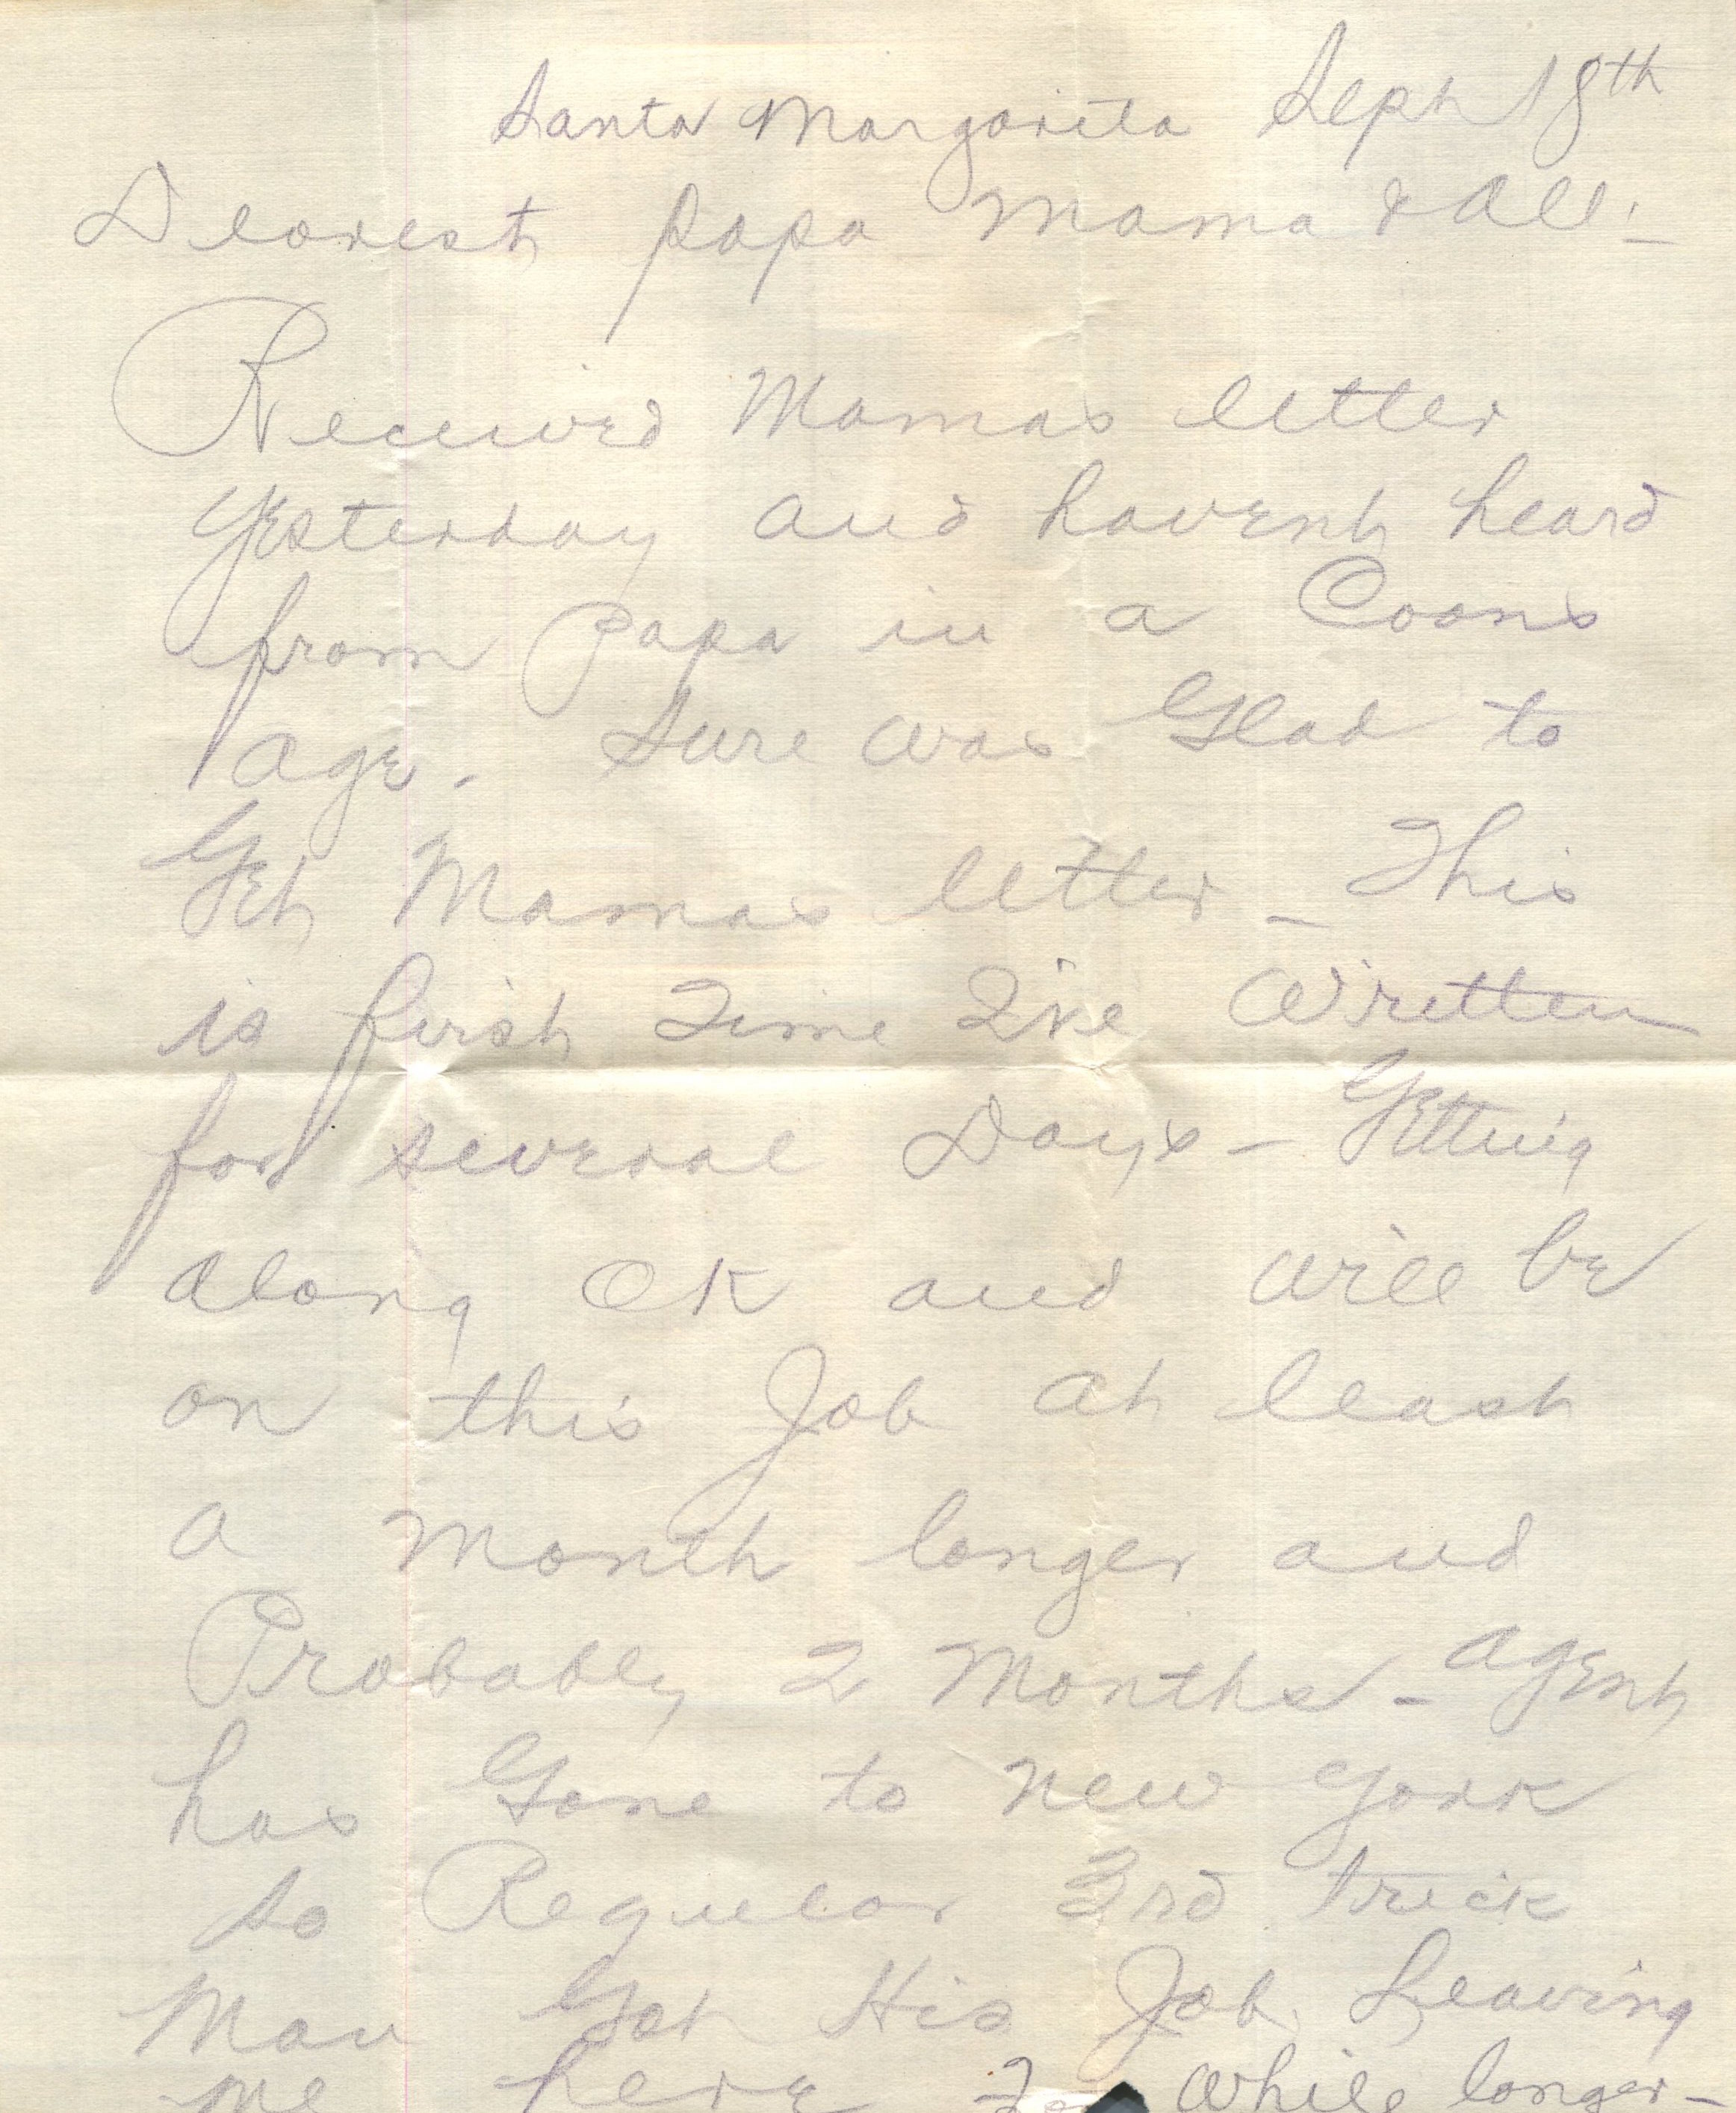 Santa Margarita Sept 18th
Dearest Papa Mama & All:-
Received Mamas letter
Yesterday and havent heard
from Papa in a Coons
age. Sure was Glad to
Get Mamas letter - This
is first Time I've Written
for several Days - Getting
along OK and will be
on this Job at least
a Month longer and
Probably 2 Months - Agent
has Gone to New York
so Regular 3rd trick
Man Got His Job Leaving
me here while longer -